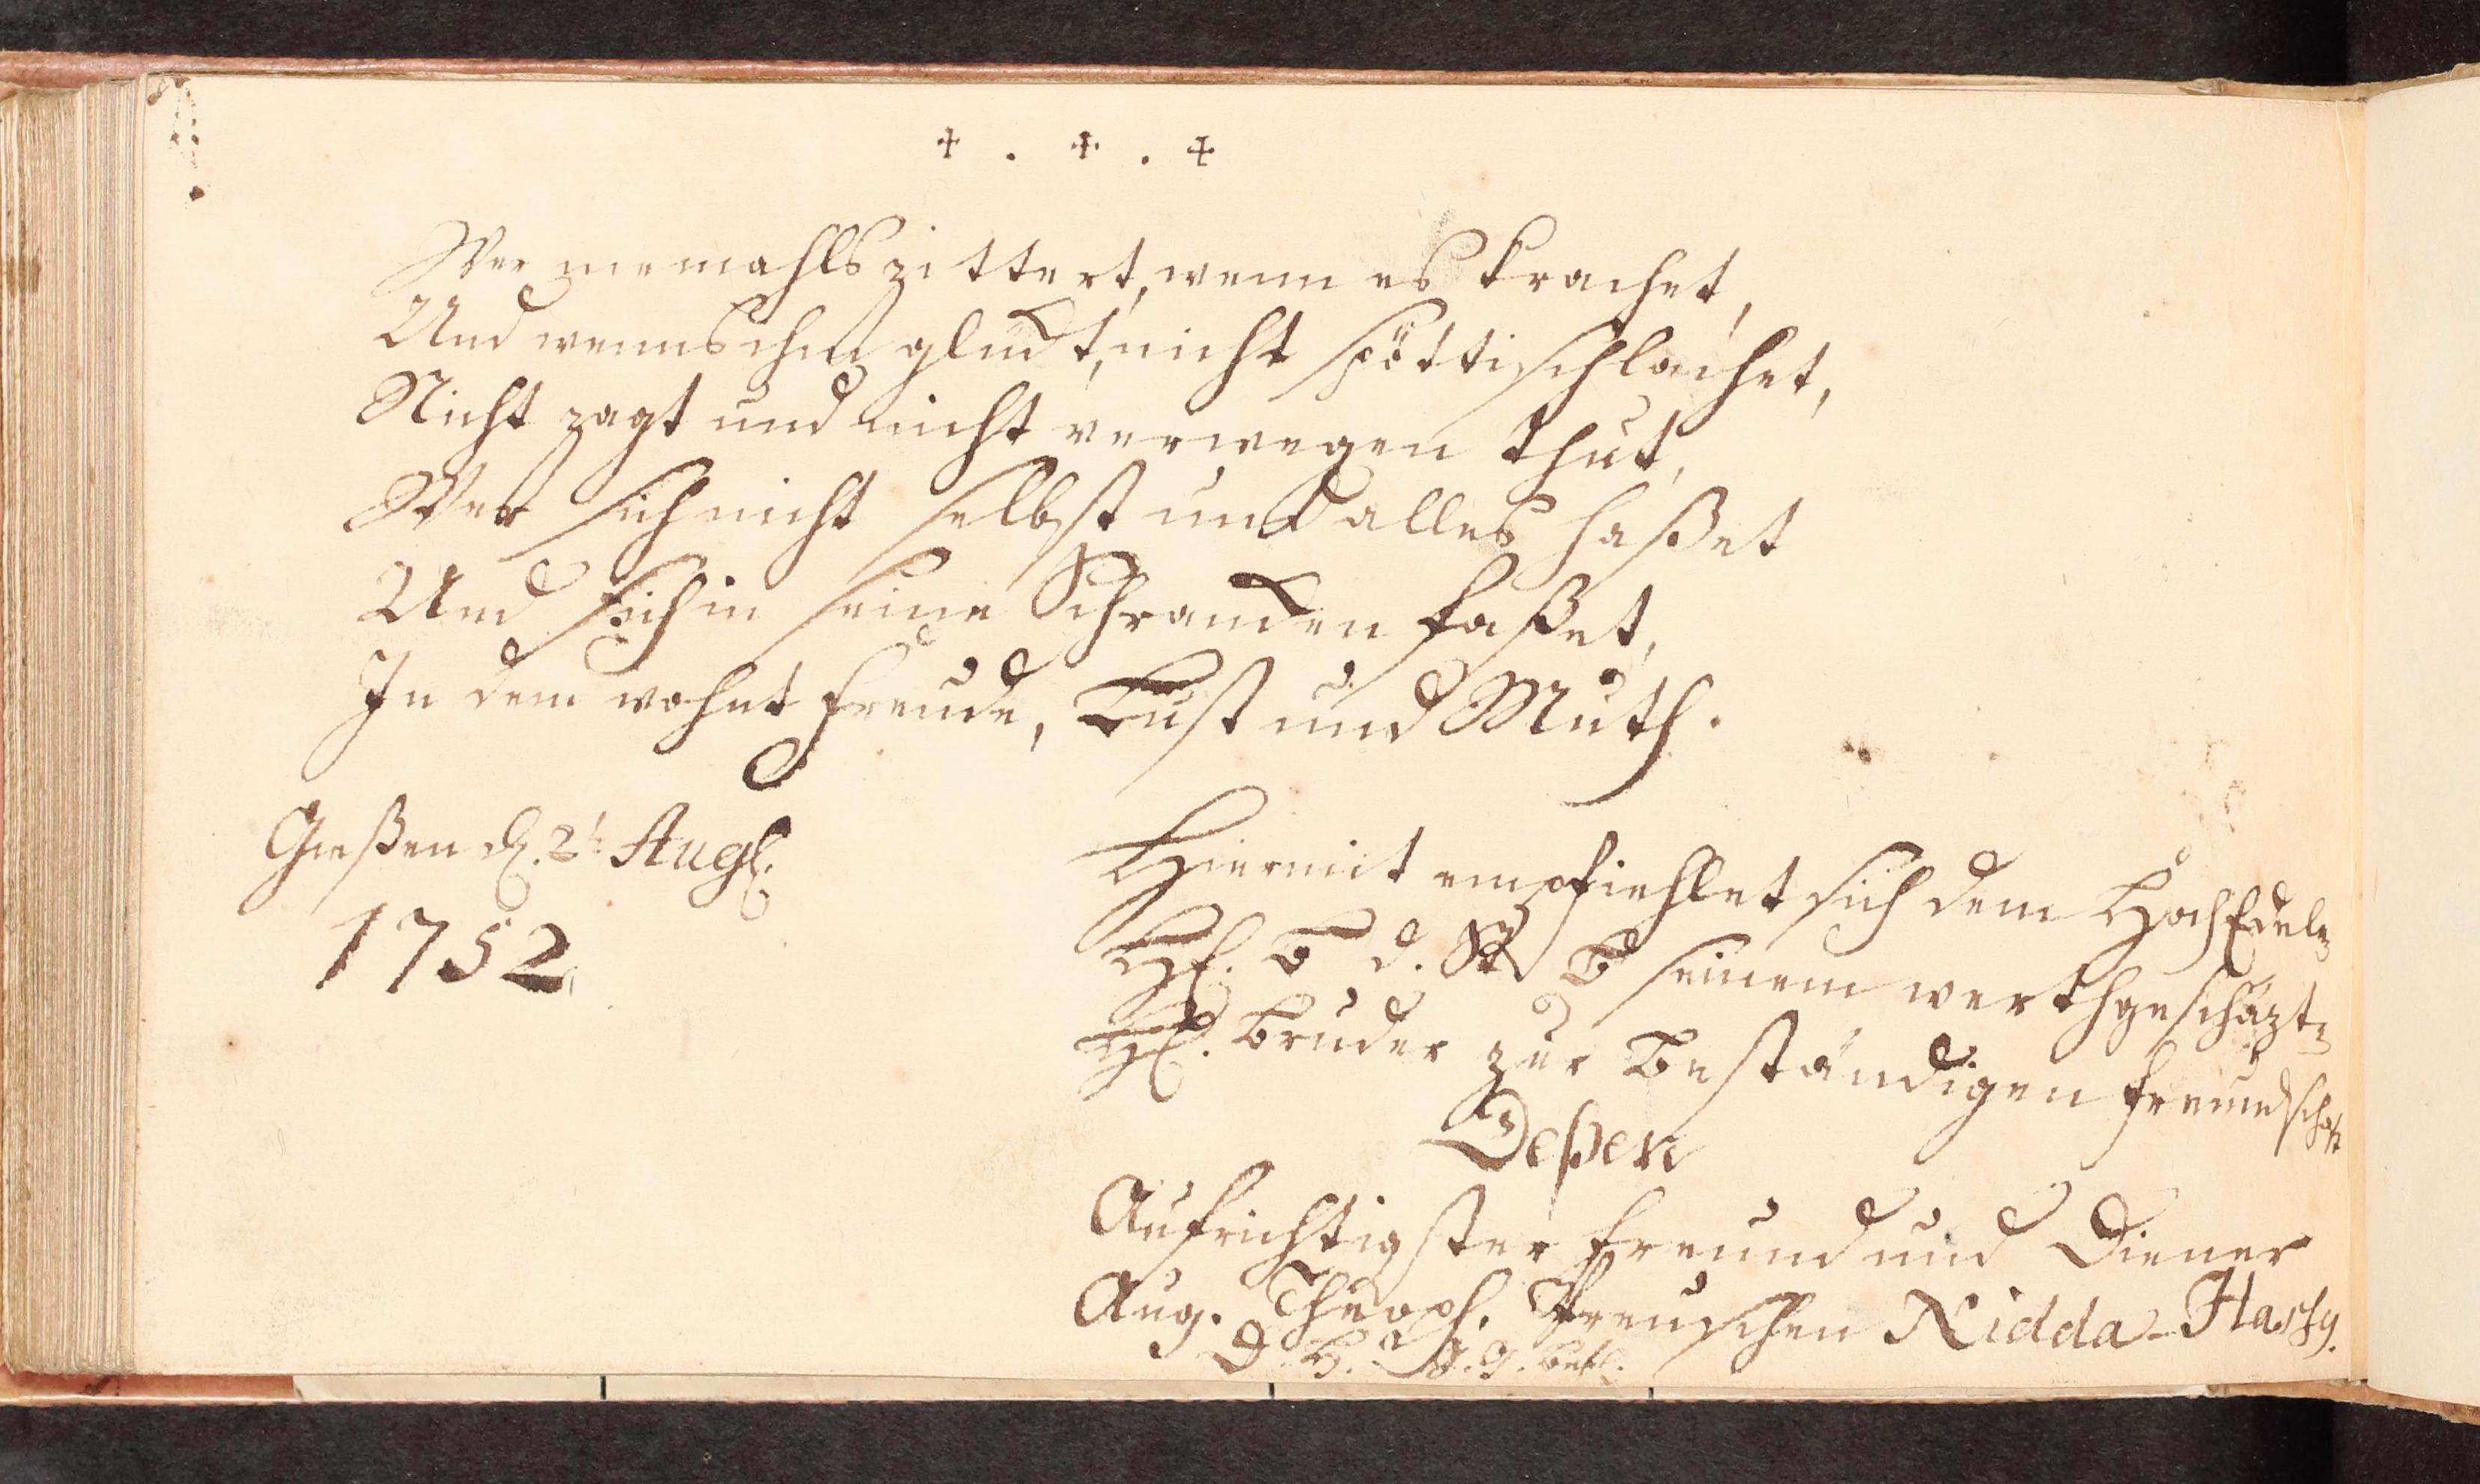 + . + . +
Wer niemahls zittert, wenn es krachet,
Und wenns ihm glückt, nicht spöttisch lachet,
Nicht zagt und nicht verwegen thut,
Wer sich nicht selbst und alles haßet
Und sich in seine Schrancken faßet,
In dem wohnt Freude, Lust und Muth.
Gießen d. 21 Aug.
1752
Hiermit empfiehlet sich dem HochEdeln
H. B. d. B seinem werthgeschäzten
H. Bruder zur Beständigen Freundschafft
Deßen
Aufrichtigster Freund und Diener
Aug. Theoph. Freuschen Nidda-Hassg.
D G. G.